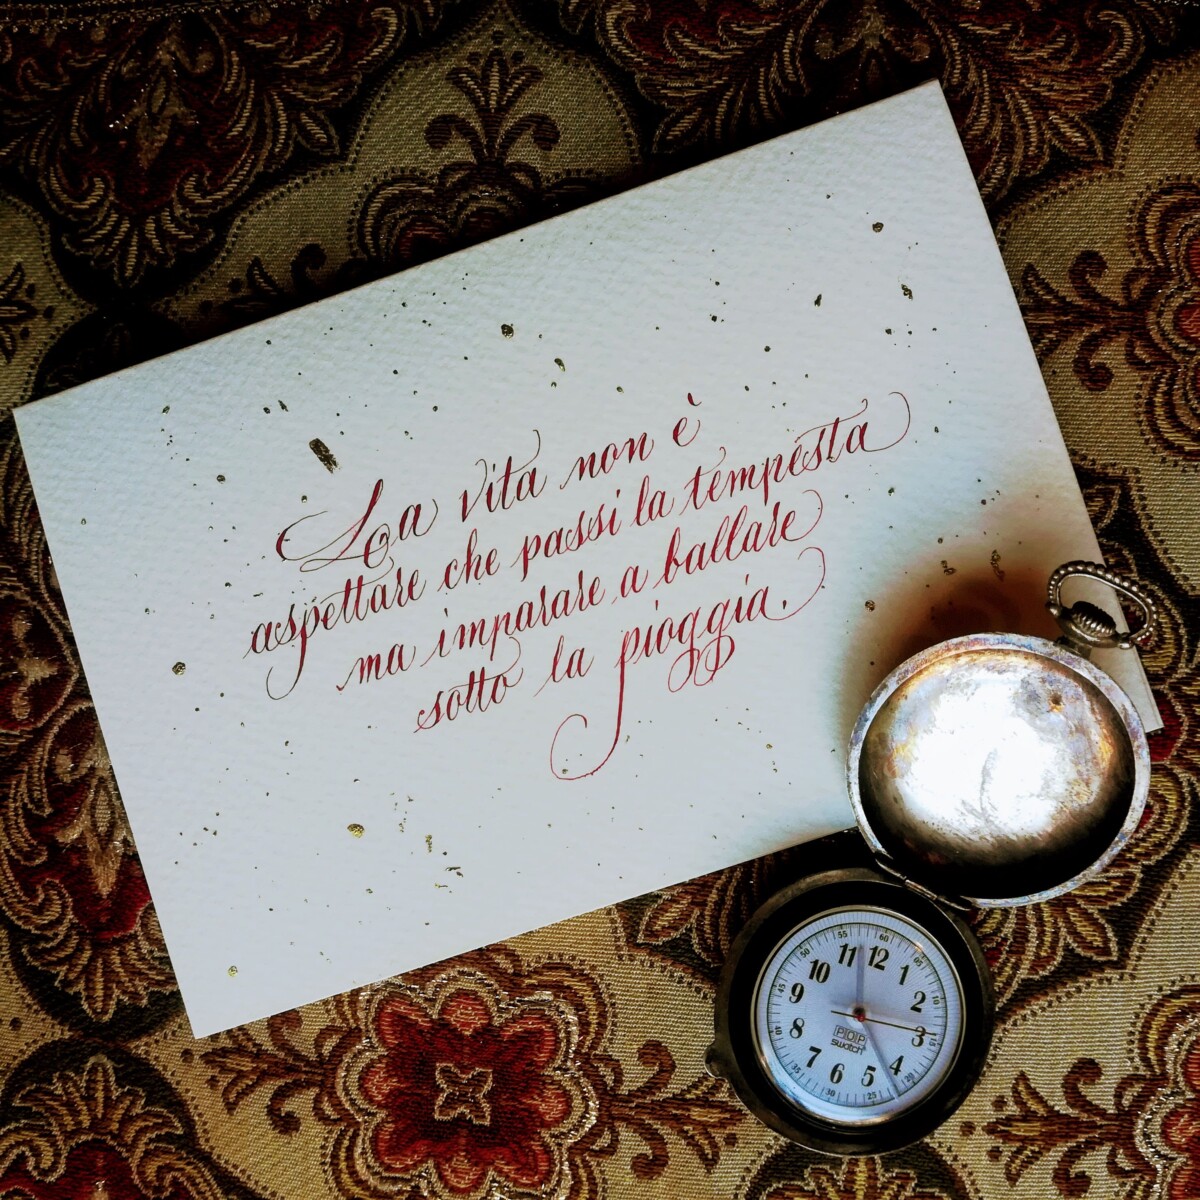 La vita non è
aspettare che passi la tempesta
ma imparare a ballare
sotto la pioggia.
55 60
50
45
40
35
30
25
20
15
10
11 12 1
10 2
9 3
8 4
7 6 5
POP
swatch